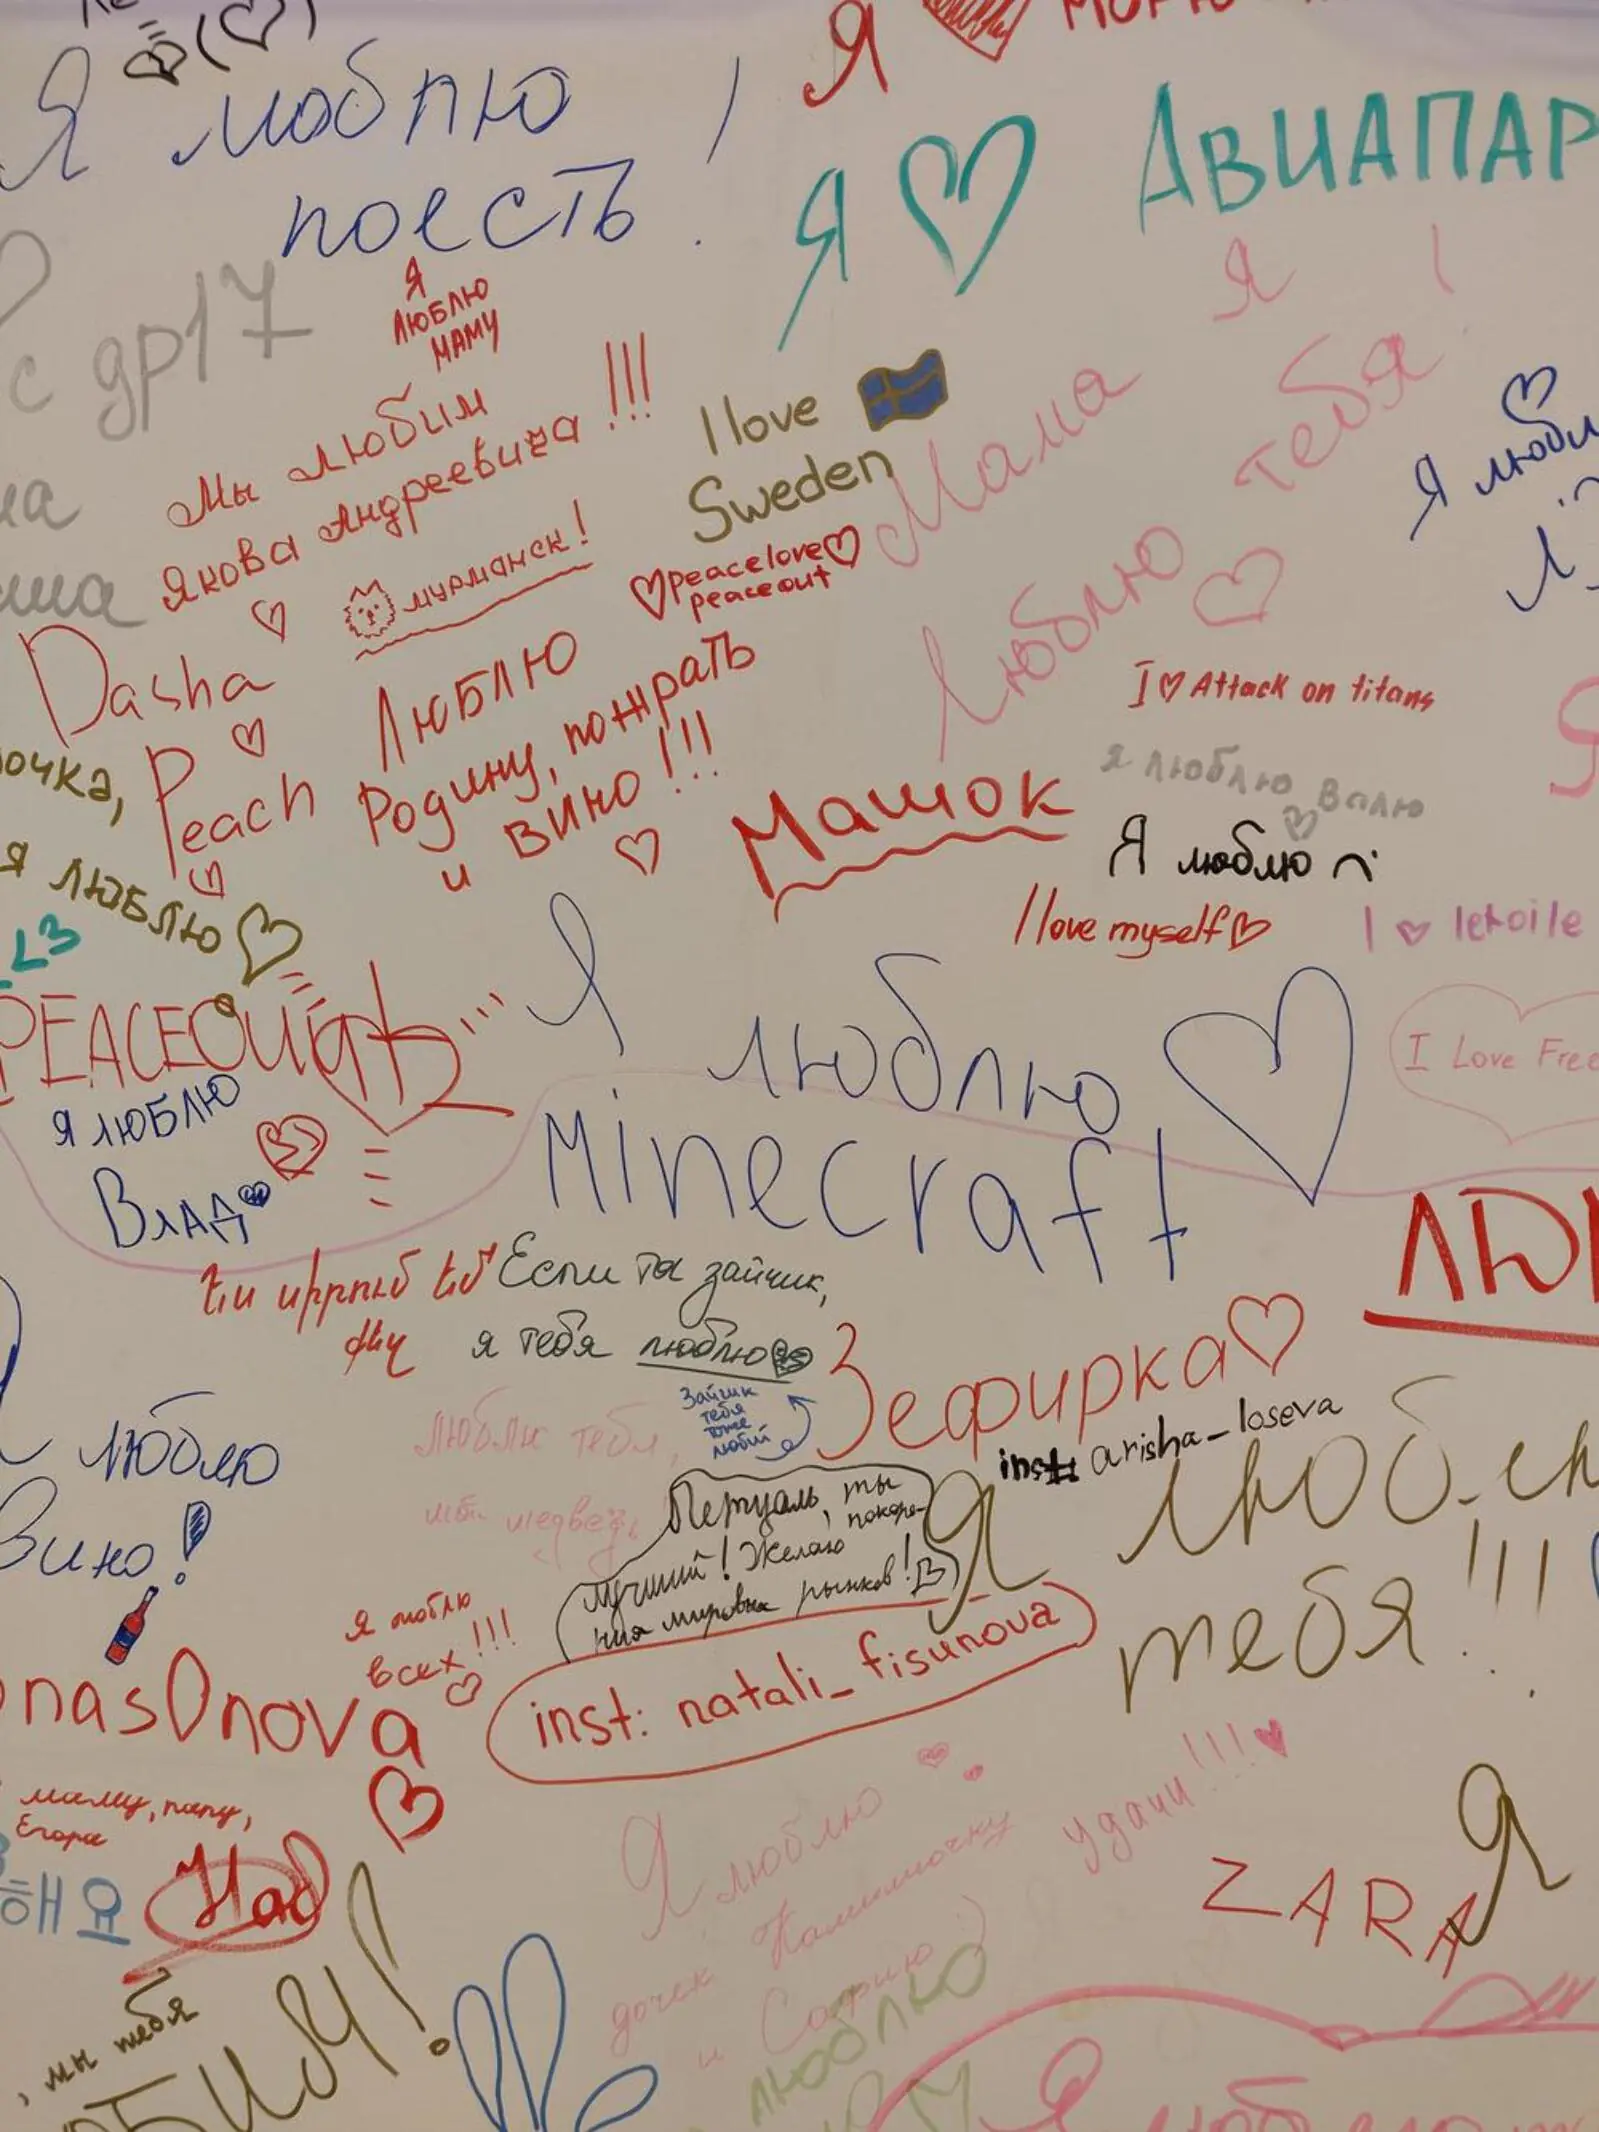 Я люблю
поесть!
Я
Я АВИАПАР
с др17
Я
ЛЮБЛЮ
МАМУ
Мы любим
Якова Андреевича!!!
I love
Sweden
peacelove
peaceout
мурманск!
Мама
Я
Люблю
тебя!
Я любл
Dasha
Peach
Люблю
Родину, пожрать
и вино!!!
I Attack on titans
Я люблю Валю
Машок
Я люблю
I love myself
I letoile
очка,
я люблю
<3
PEACEOUT
I Love Free
Я люблю
Minecraft
Я люблю
Влад
ЛЮ
Ես սիրում եմ
ձեզ
Если ты зайчик,
я тебя люблю
Зайчик
тебя
тоже
любит
Зефирка
inst: arisha_loseva
люблю
Вино!
люблю тебя,
медведь
Петруаль, ты
лучший! Желаю покоре-
ния мировых рынков!
Я люблю
всех!!!
inst: natali_fisunova
Я люблю
тебя!!!
nasOnova
маму, папу,
Егора
해요
Над
Я люблю
дочек
и Софию
Удачи!!!
ZARA
Я
, мы тебя
люблю
Я люблю